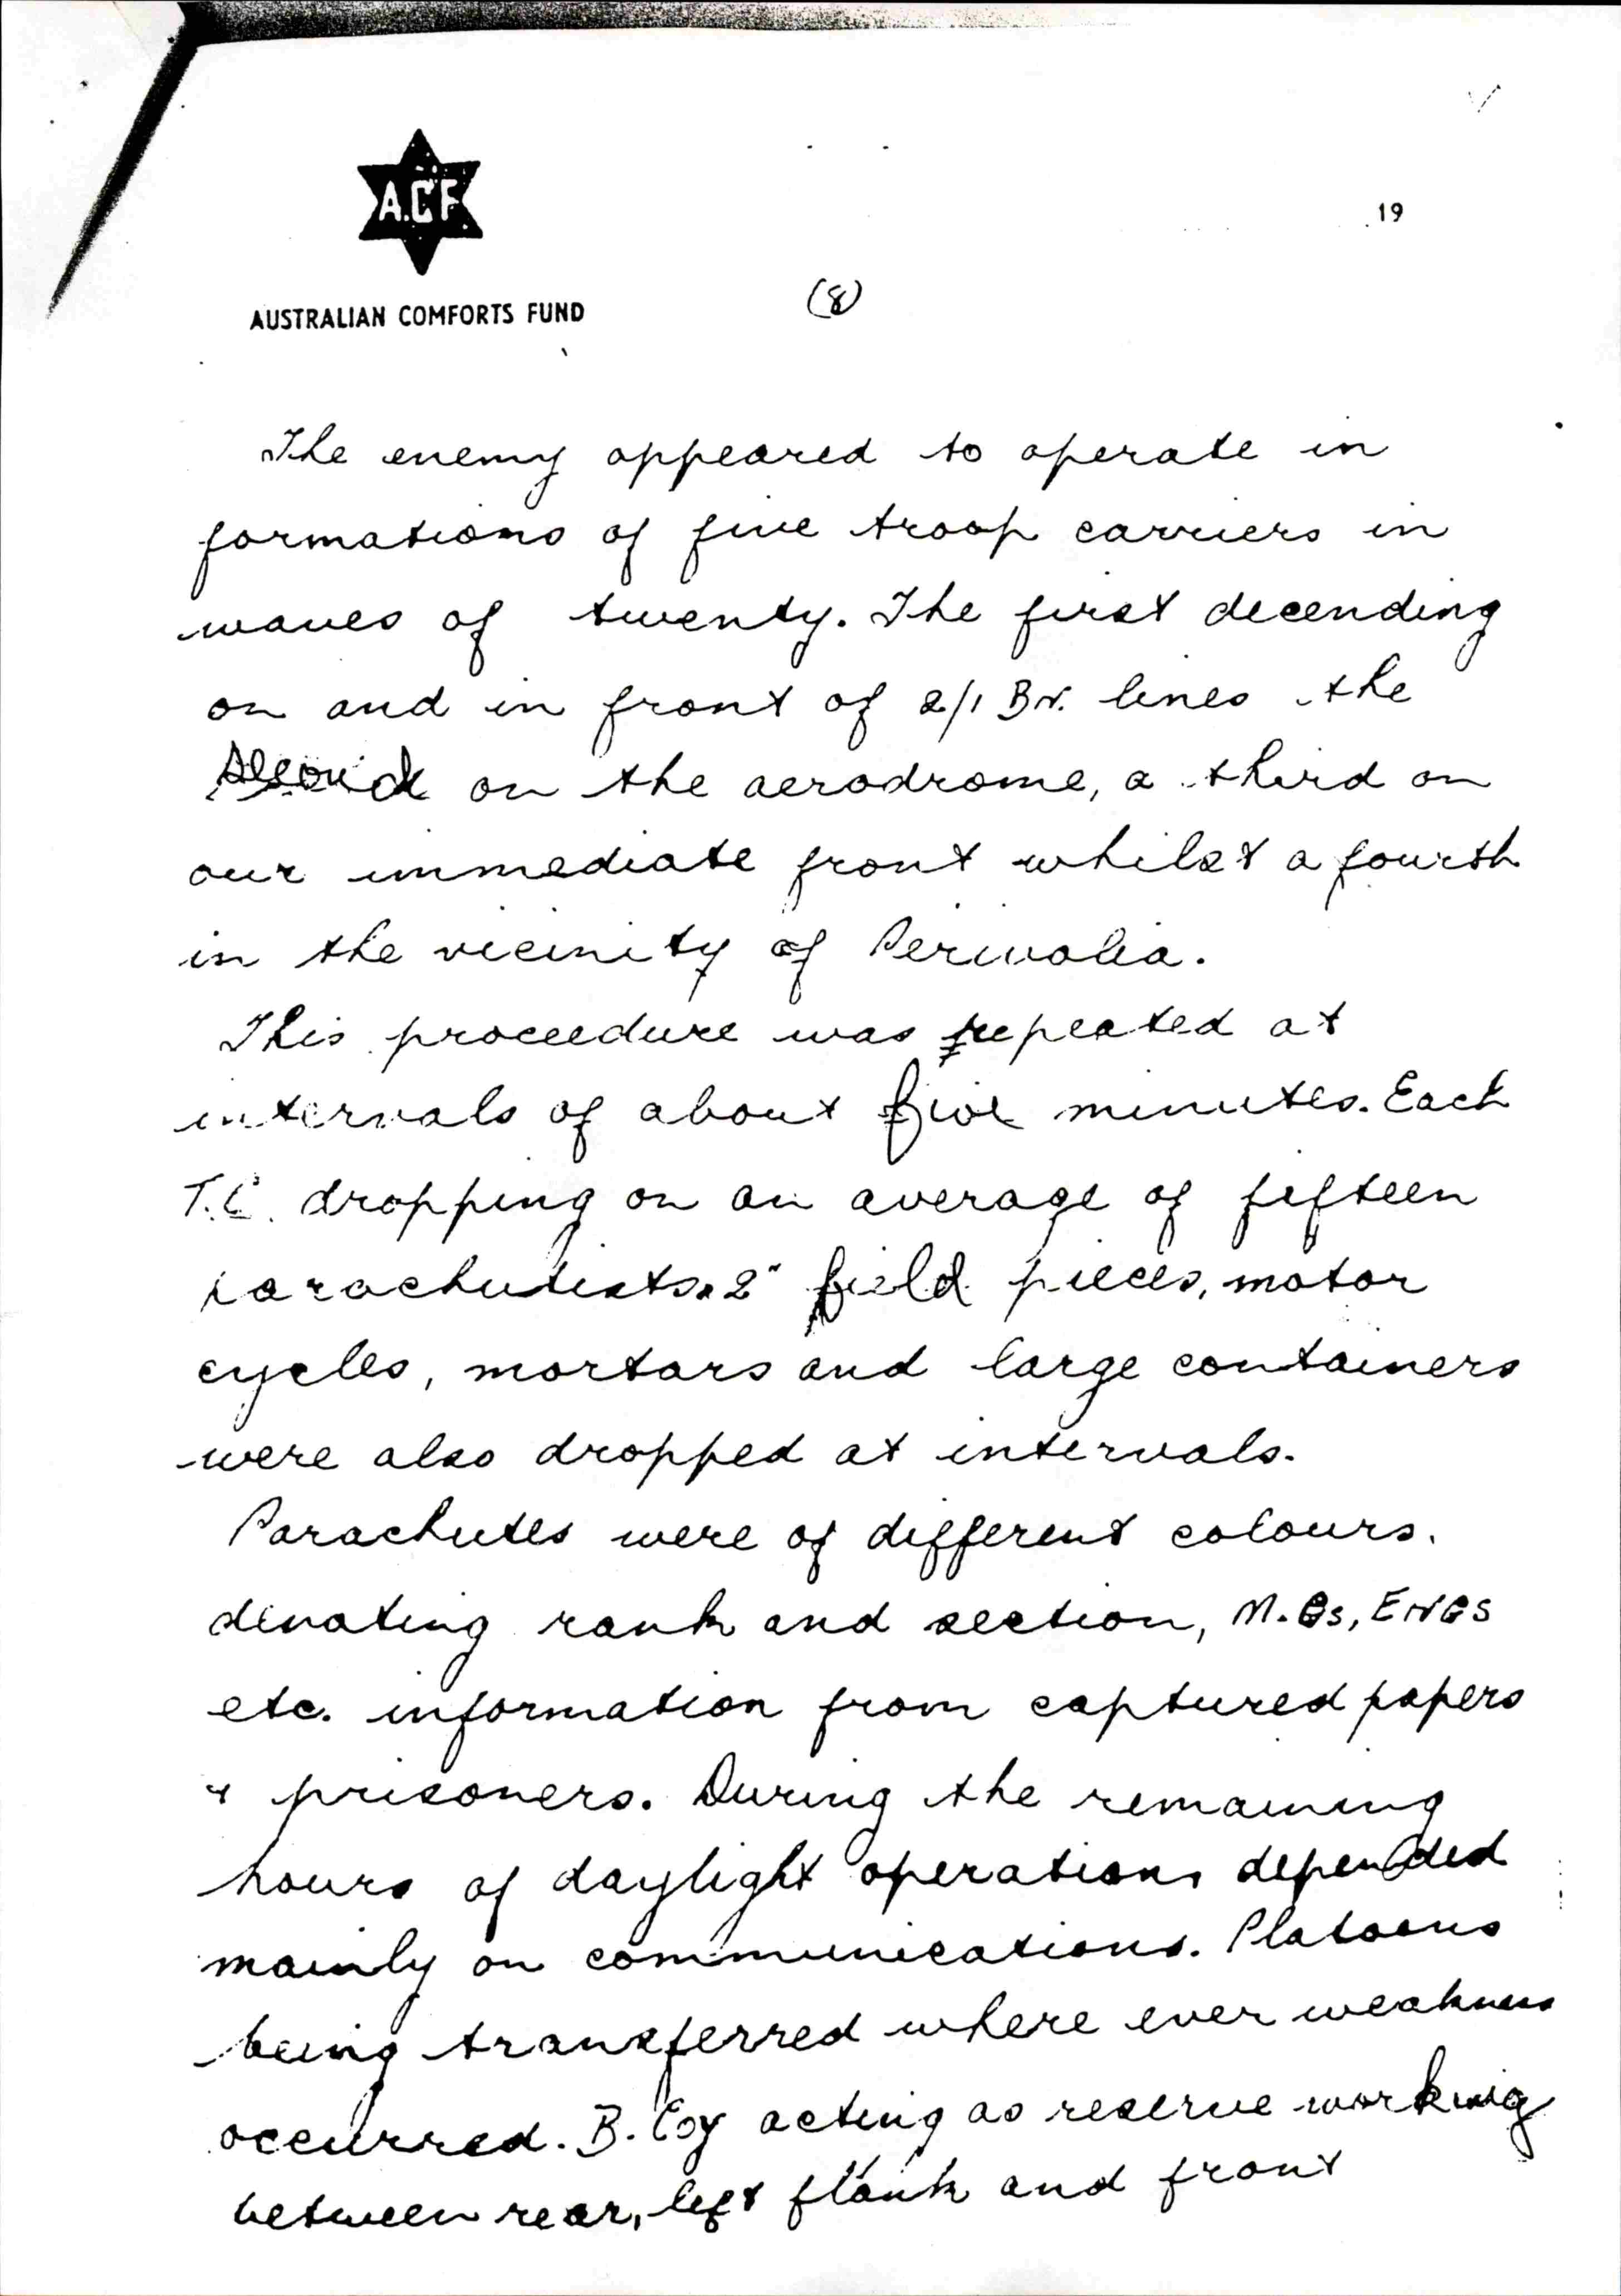 A.C.F
19
AUSTRALIAN COMFORTS FUND
(8)
The enemy appeared to operate in
formations of five troop carriers in
waves of twenty. The first decending
on and in front of 2/1 BN. lines the
second on the aerodrome, a third on
our immediate front whilst a fourth
in the vicinity of Perivolia.
This proceedure was repeated at
intervals of about five minutes. Each
T.C. dropping on an average of fifteen
parachutists. 2" field pieces, motor
cycles, mortars and large containers
were also dropped at intervals.
Parachutes were of different colours.
denoting rank and section, M.Gs, ENGS
etc. information from captured papers
& prisoners. During the remaining
hours of daylight operations depended
mainly on communications. Platoons
being transferred where ever weakness
occurred. B. Coy acting as reserve working
between rear, left flank and front